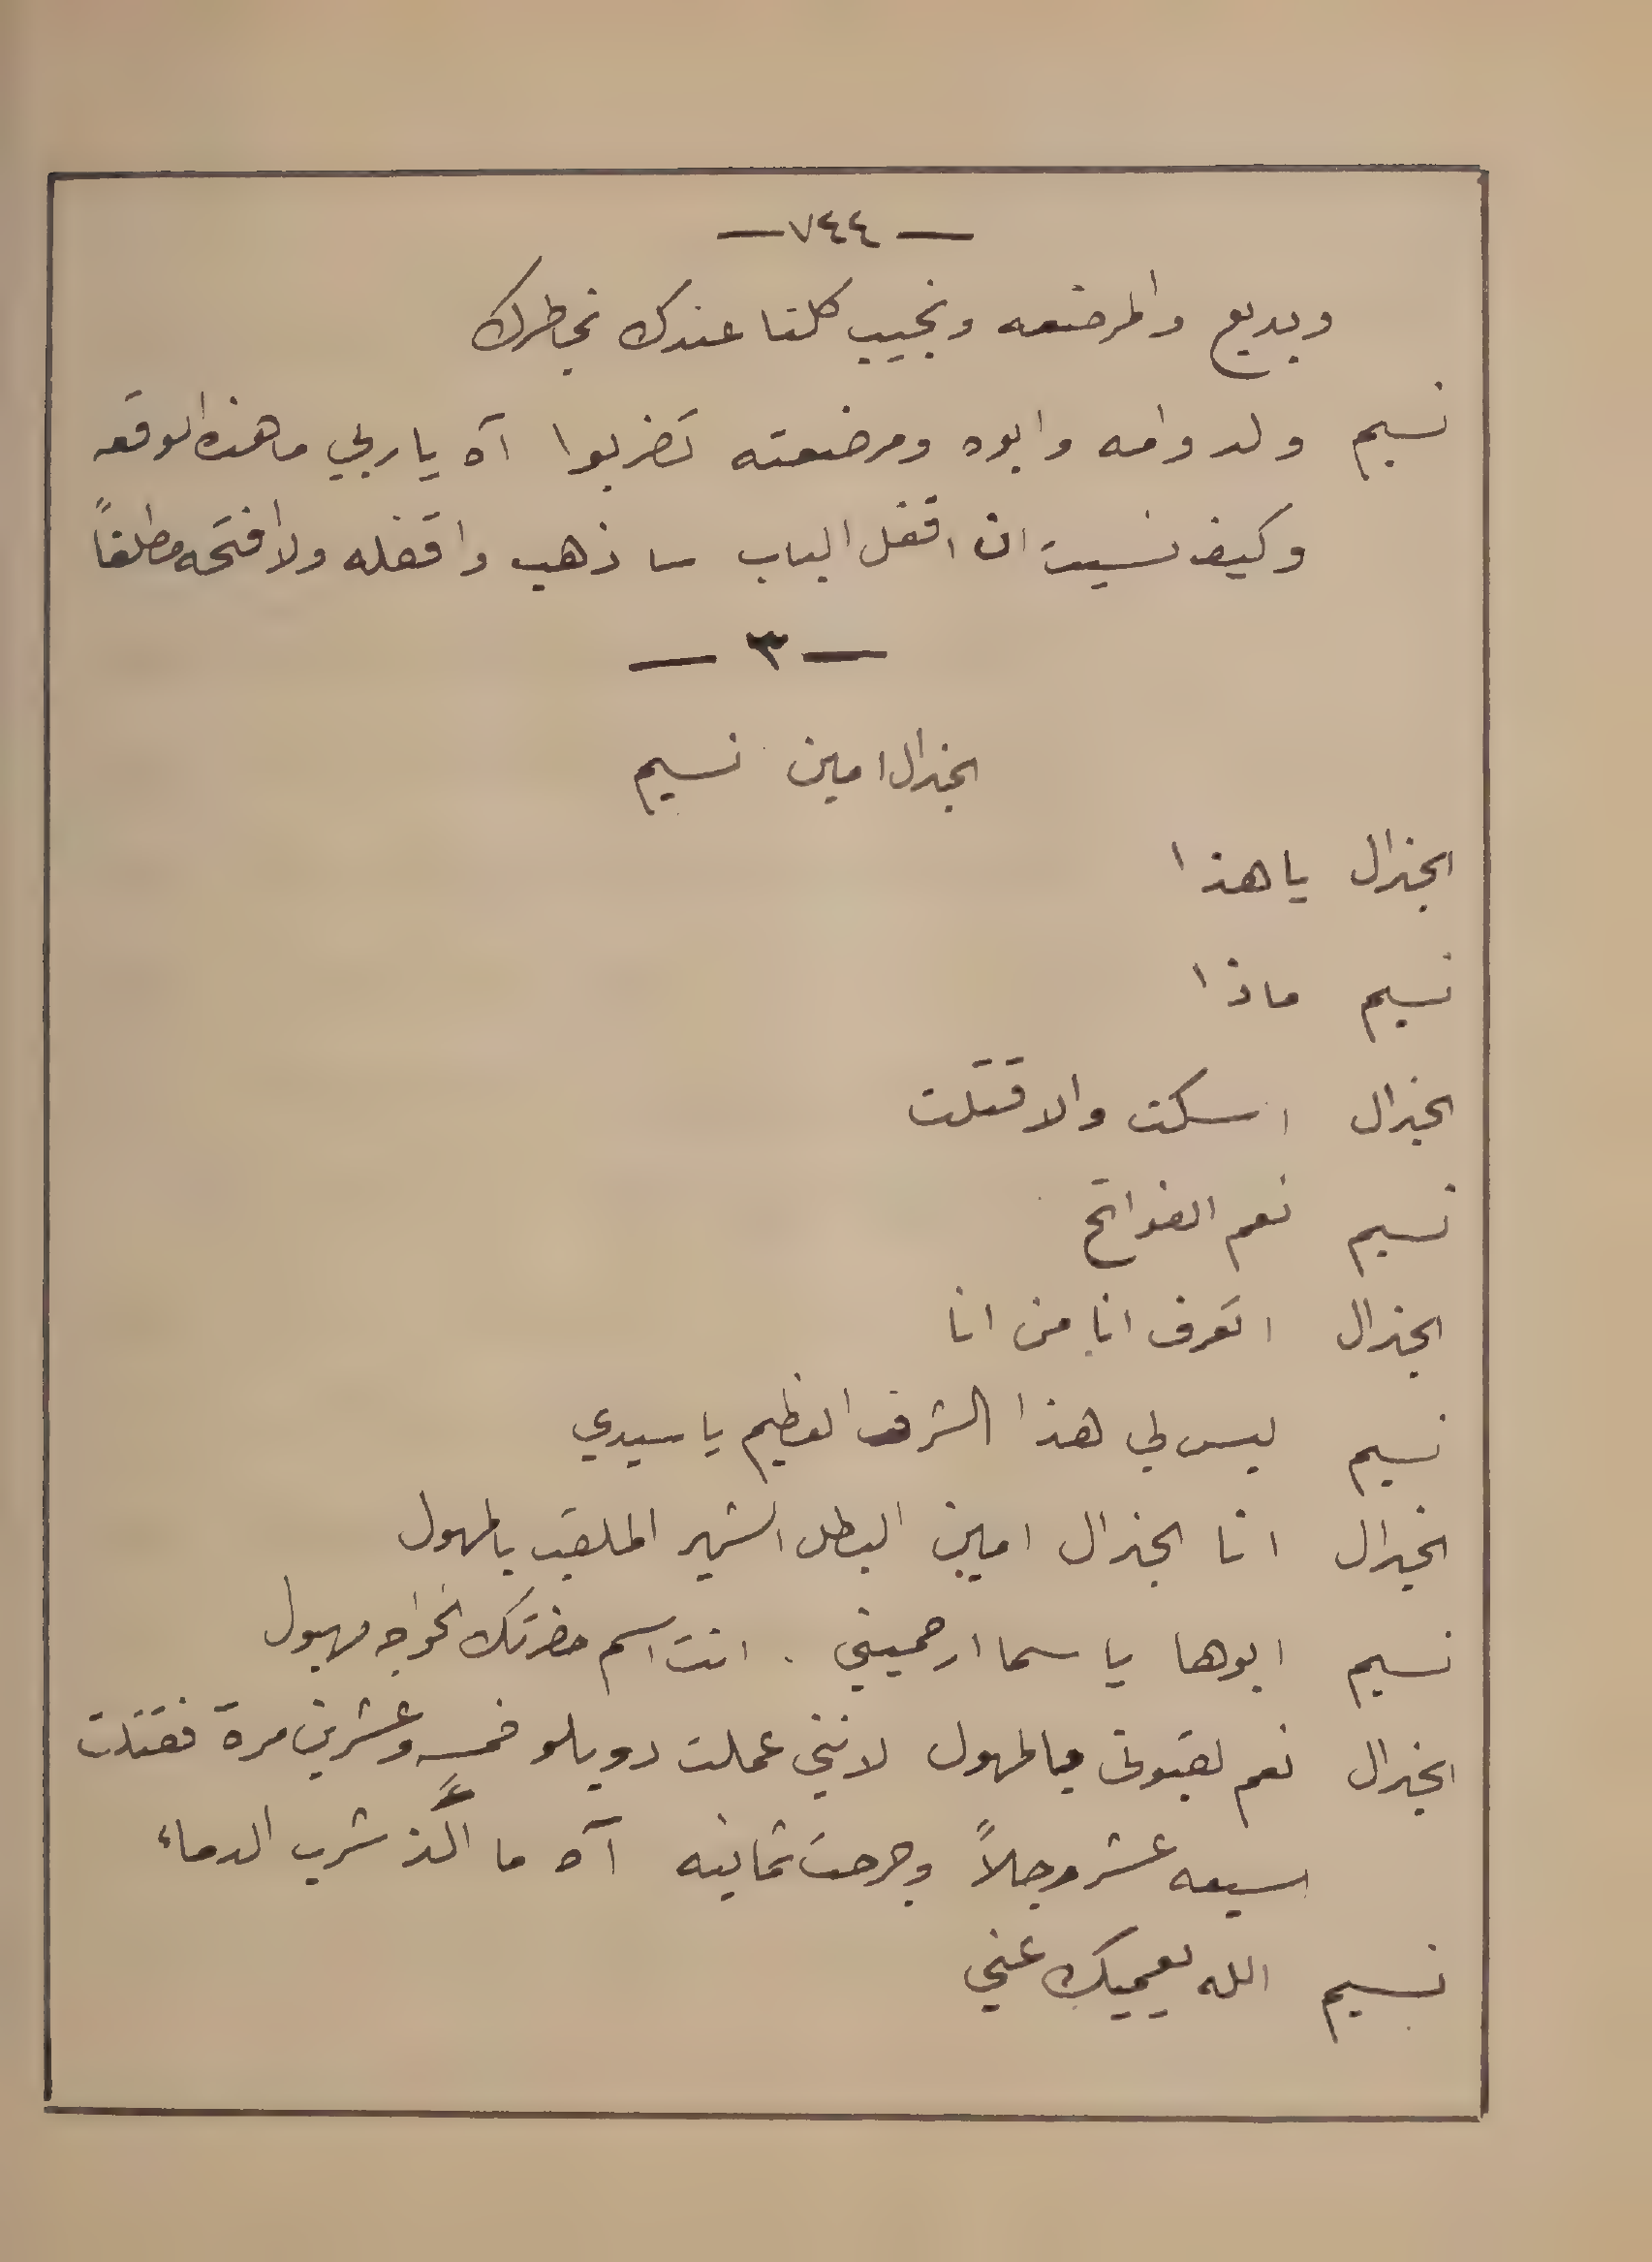 — ٧٤٤ —
وبديع والمرضعه ونجيب كلنا عندك نجاطرك
نسيم ولد وامه وابوه ومرضعته تضربوا آه ياربي ما هذه الوقعه
وكيف نسيت ان اقفل الباب سا ذهب واقفله ولا افتحه مطلقاً
— ٣ —
الجنرال امين نسيم
الجنرال يا هذا
نسيم ماذا
الجنرال اسكت والا قتلت
نسيم نعم الفواتح
الجنرال اتعرف انا من انا
نسيم ليس لي هذا الشرف العظيم يا سيدي
الجنرال انا الجنرال امين البطل الشهير الملقب بالمهول
نسيم ابوها يا سما ارحميني . انت اسم حضرتك الخواجه مهبول
الجنرال نعم لقبوني بالمهول لانني عملت دويلو خمسه وعشرين مرة فقتلت
سبعه عشر رجلاً وجرحت ثمانيه آه ما الذ شرب الدماء
نسيم الله يعميك عني